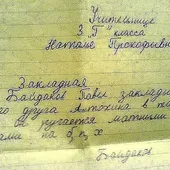 Учительнице
3 "Г" класса
Наталье Прокофьевн
Закладная
Байдаков Павел закладыв
го друга Атохина в то
ругается матными
ами на б, п, х
Байдаков